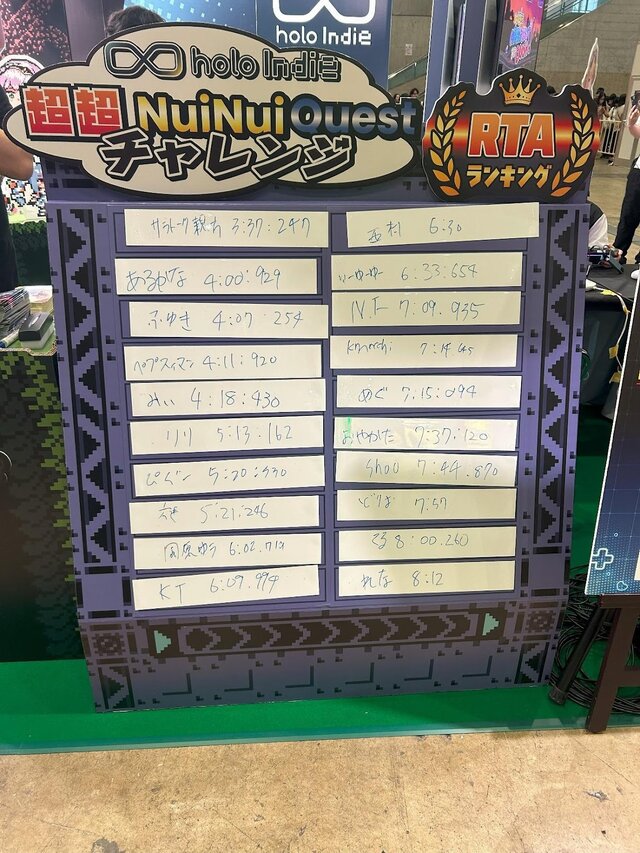 holo Indie
holo Indie
超超 NuiNui Quest
チャレンジ
RTA
ランキング
3:37:247
あるかな 4:00:929
ふゆき 4:07 254
ペプスィマン 4:11:920
みい 4:18:430
リリ 5:13.162
ぴぐン 5:20:330
5:21:246
6:02.712
KT 6:09.994
西村 6:30
6:33:654
N.I 7:09.935
7:14
めぐ 7.15:094
おやかた 7:37:120
Shoo 7:44.870
7:57
8:00.260
れな 8:12